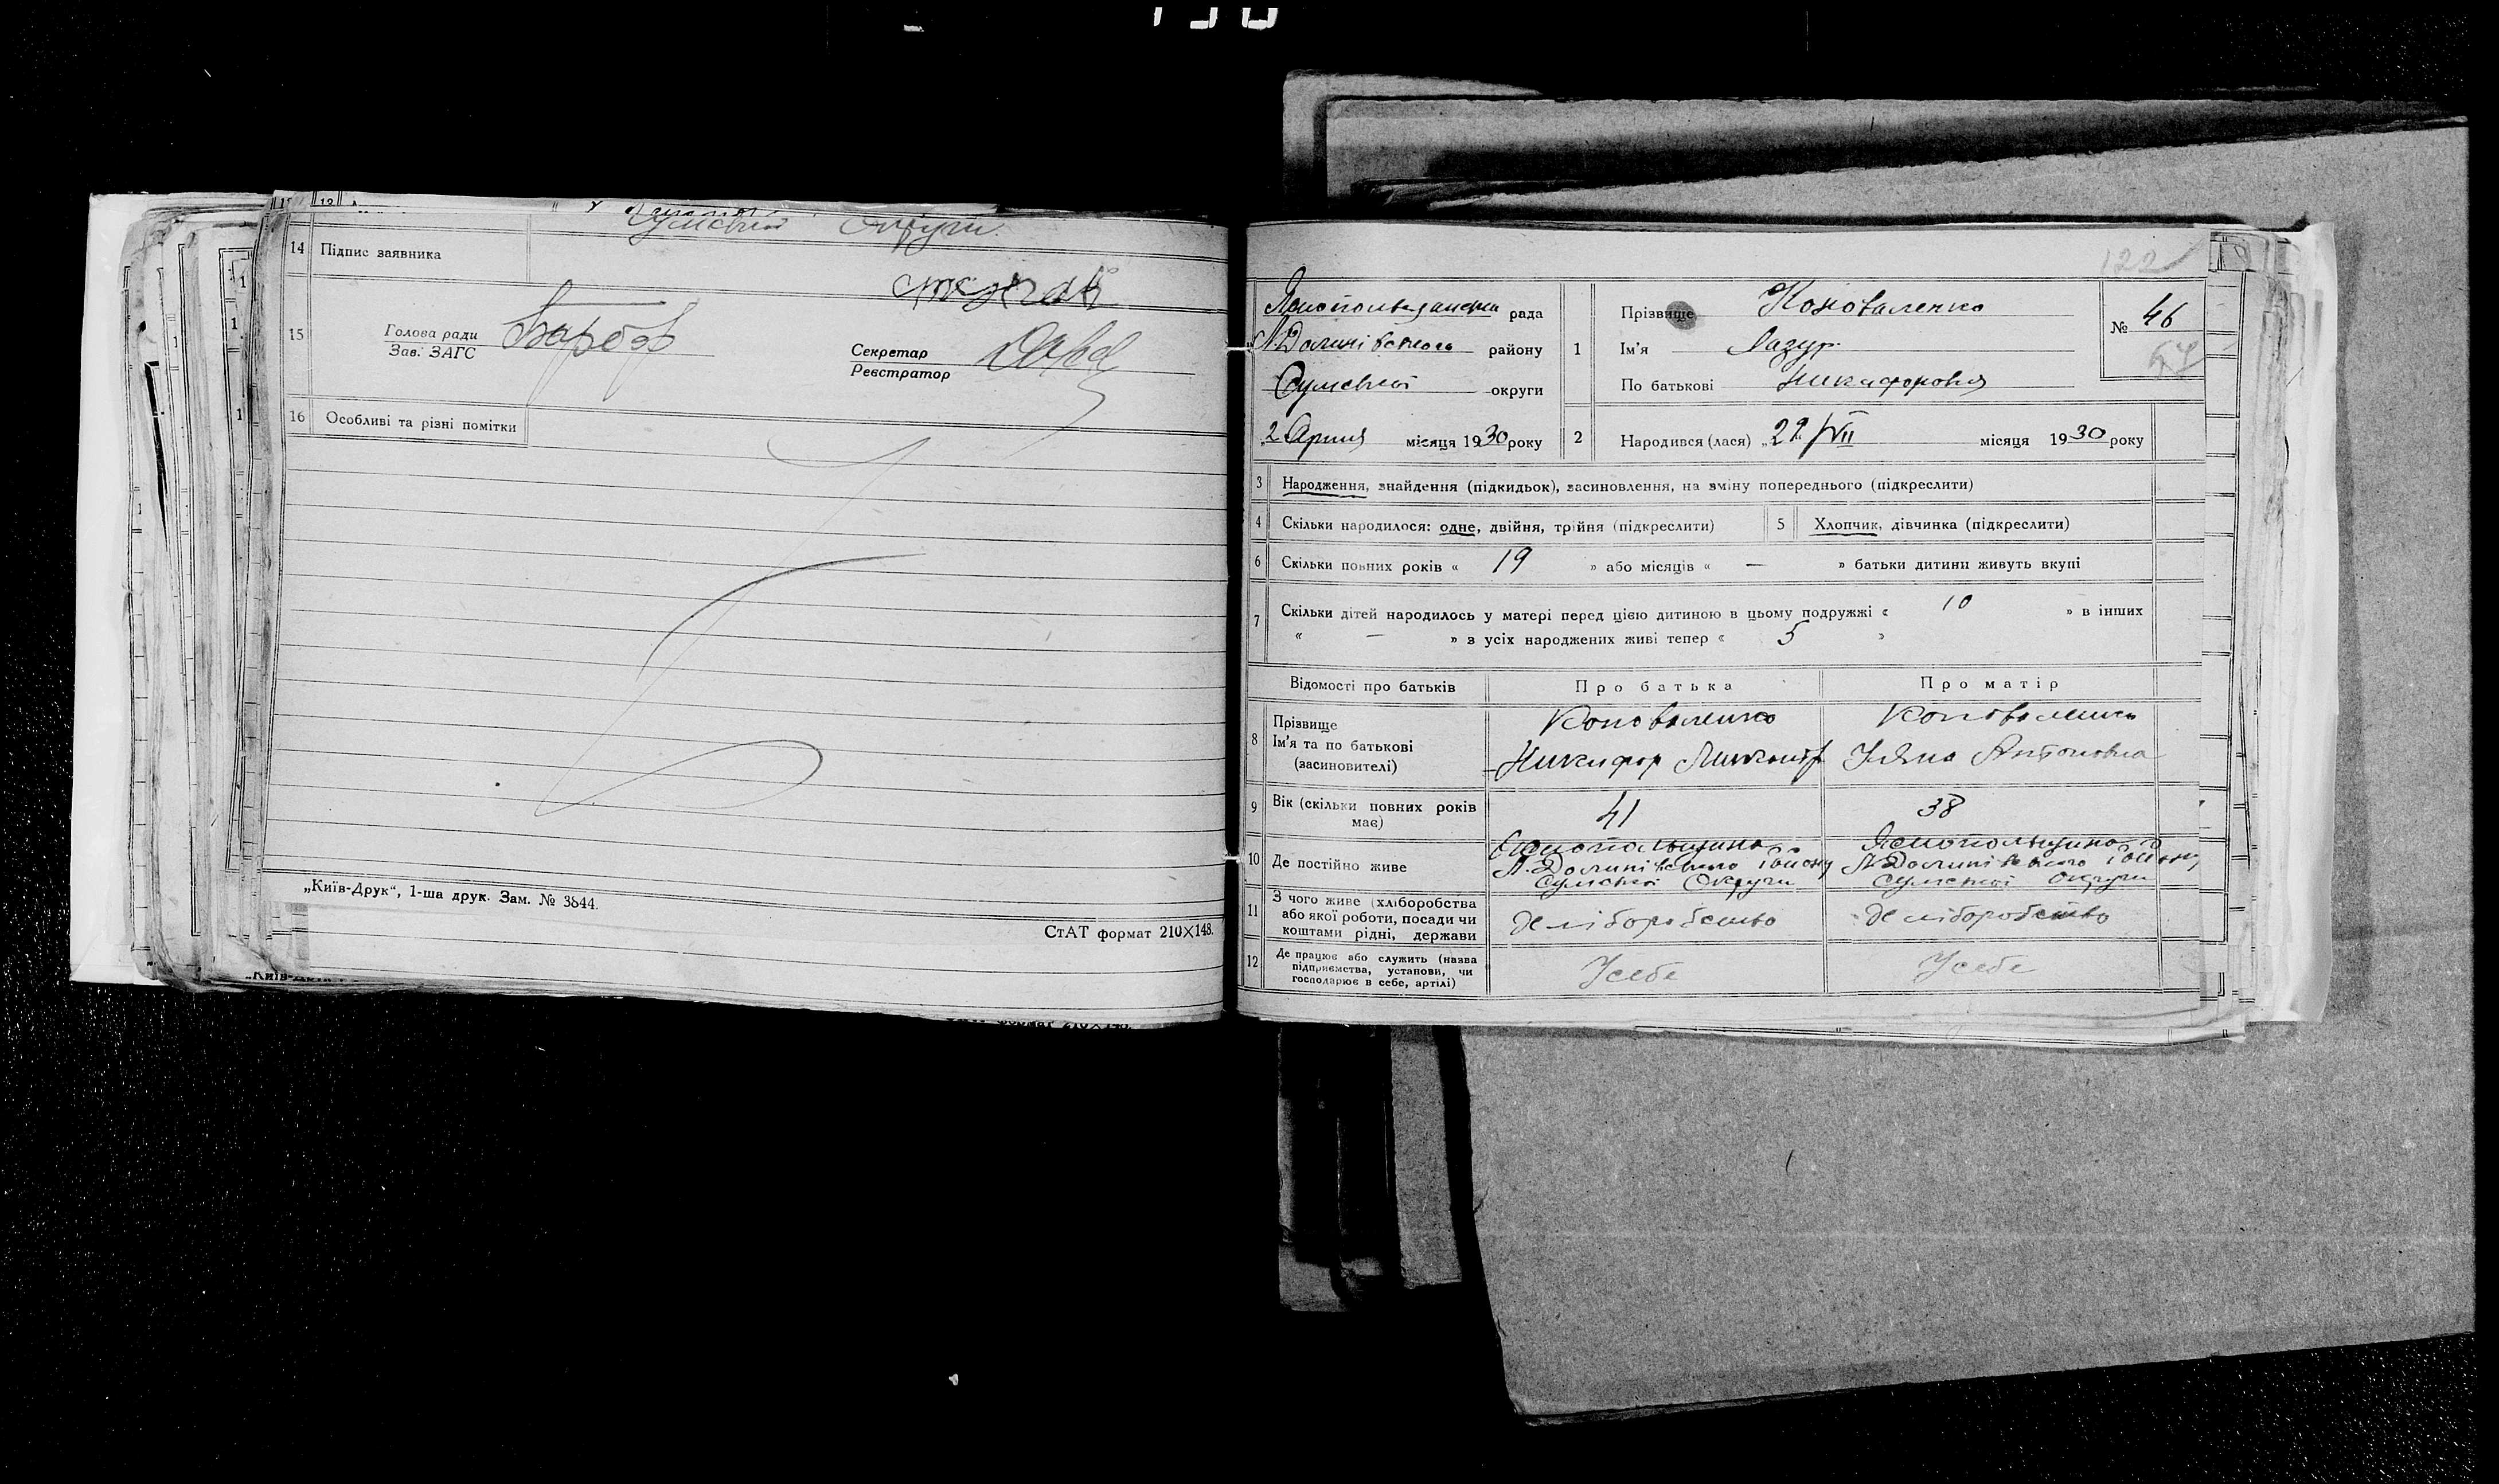 Сумської Округи.
14 Підпис заявника
15 Голова ради
Зав. ЗАГС
Секретар
Реєстратор
16 Особливі та різні помітки
„Київ-Друк“, 1-ша друк. Зам. № 3844.
СтАТ формат 210×148.
122
рада
району
Сумської округи
2 місяця 1930 року
1 Прізвище Коноваленко
Ім'я Лазур.
По батькові Никифоровія
№ 46
2 Народився (лася) „22/VII місяця 1930 року
3 Народження, знайдення (підкидьок), засиновлення, на зміну попереднього (підкреслити)
4 Скільки народилося: одне, двійня, трійня (підкреслити) 5 Хлопчик, дівчинка (підкреслити)
6 Скільки повних років « 19 » або місяців « — » батьки дитини живуть вкупі
7 Скільки дітей народилось у матері перед цією дитиною в цьому подружжі « 10 » в інших
« — » з усіх народжених живі тепер « 5 »
Відомості про батьків Про батька Про матір
8 Прізвище Коноваленко Коноваленко
Ім'я та по батькові
(засиновителі) Никифор Уляна Антоновна
9 Вік (скільки повних років має) 41 38
10 Де постійно живе Ямпольщина Ямпольщина
Сумської Округи Сумської Округи
11 З чого живе (хліборобства
або якої роботи, посади чи
коштами рідні, держави хліборобство хліборобство
12 Де працює або служить (назва
підприємства, установи, чи
господарює в себе, артілі) У себе У себе